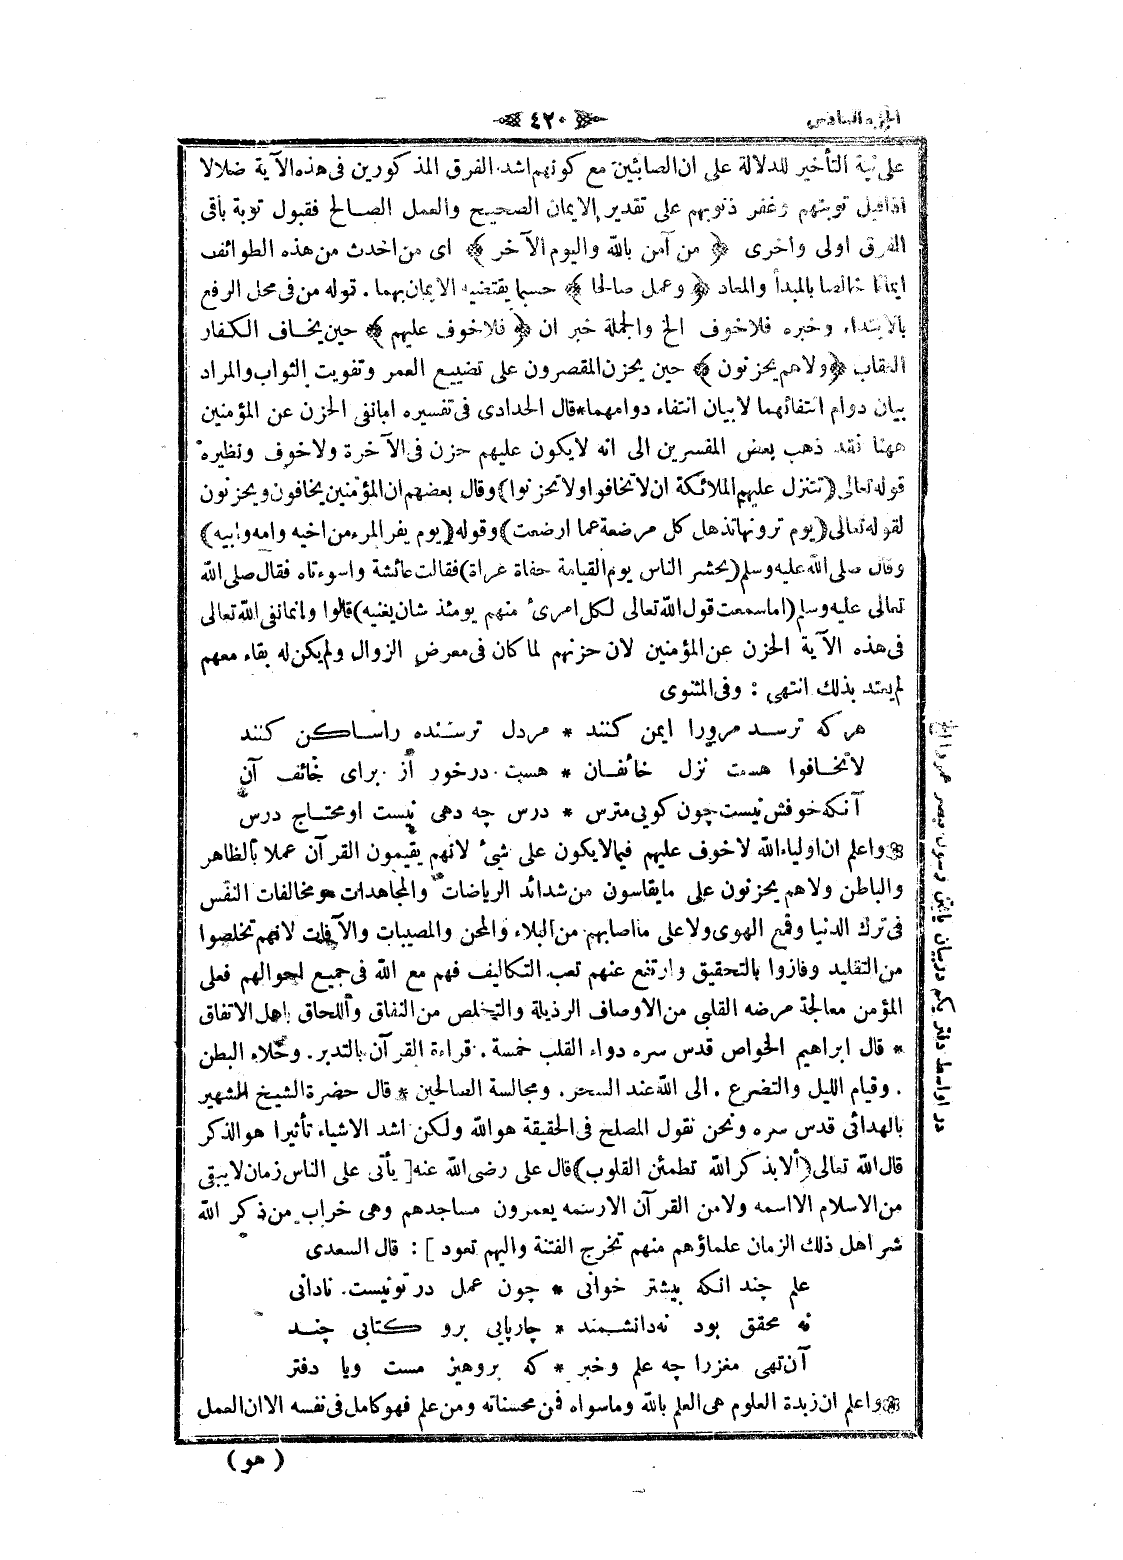 الجزء السادس
٤٢٠
على نية التأخير للدلالة على ان الصابئين مع كونهم اشد الفرق المذكورين فى هذه الآية ضلالا
اذا قبل توبتهم وغفر ذنوبهم على تقدير الايمان الصحيح والعمل الصالح فقبول توبة باقى
الفرق اولى واخرى ﴿ من آمن بالله واليوم الآخر ﴾ اى من احدث من هذه الطوائف
ايمانا خالصا بالمبدأ والمعاد ﴿ وعمل صالحا ﴾ حسبما يقتضيه الايمان بهما . قوله من فى محل الرفع
بالابتداء وخبره فلاخوف الخ والجملة خبر ان ﴿ فلاخوف عليهم ﴾ حين يخاف الكفار
العقاب ﴿ ولاهم يحزنون ﴾ حين يحزن المقصرون على تضييع العمر وتفويت الثواب والمراد
بيان دوام انتفائهما لا بيان انتفاء دوامهما * قال الحدادى فى تفسيره امانفى الحزن عن المؤمنين
ههنا فقد ذهب بعض المفسرين الى انه لايكون عليهم حزن فى الآخرة ولاخوف ونظيره
قوله تعالى (تتنزل عليهم الملائكة ان لاتخافوا ولاتحزنوا) وقال بعضهم ان المؤمنين يخافون ويحزنون
لقوله تعالى (يوم ترونها تذهل كل مرضعة عما ارضعت) وقوله (يوم يفر المرء من اخيه وامه وابيه)
وقال صلى الله عليه وسلم (يحشر الناس يوم القيامة حفاة عراة) فقالت عائشة واسوءتاه فقال صلى الله
تعالى عليه وسلم (اما سمعت قول الله تعالى لكل امرئ منهم يومئذ شان يغنيه) قالوا وانمانفى الله تعالى
فى هذه الآية الحزن عن المؤمنين لان حزنهم لما كان فى معرض الزوال ولم يكن له بقاء معهم
لم يعتد بذلك انتهى : وفى المثنوى
هر كه ترسد مرورا ايمن كنند * مردل ترسنده راساكن كنند
لاتخافوا هست نزل خائفان * هست درخور از براى خائف آن
آنكه خوفش نيست چون كويى مترس * درس چه دهى نيست او محتاج درس
واعلم ان اولياء الله لاخوف عليهم فيمالايكون على شئ لانهم يقيمون القرآن عملا بالظاهر
والباطن ولاهم يحزنون على مايقاسون من شدائد الرياضات والمجاهدات هو مخالفات النفس
فى ترك الدنيا وقمع الهوى ولاعلى مااصابهم من البلاء والمحن والمصيبات والآفات لانهم تخلصوا
من التقليد وفازوا بالتحقيق وارتفع عنهم تعب التكاليف فهم مع الله فى جميع احوالهم فعلى
المؤمن معالجة مرضه القلبى من الاوصاف الرذيلة والتخلص من النفاق واللحاق باهل الاتفاق
* قال ابراهيم الخواص قدس سره دواء القلب خمسة . قراءة القرآن بالتدبر. وخلاء البطن
. وقيام الليل والتضرع . الى الله عند السحر . ومجالسة الصالحين * قال حضرة الشيخ المشهير
بالهدائى قدس سره ونحن نقول المصلح فى الحقيقة هوالله ولكن اشد الاشياء تأثيرا هو الذكر
قال الله تعالى (ألا بذكر الله تطمئن القلوب) قال على رضى الله عنه [ يأتى على الناس زمان لايبقى
من الاسلام الااسمه ولامن القرآن الارسمه يعمرون مساجدهم وهى خراب من ذكر الله
شر اهل ذلك الزمان علماؤهم منهم تخرج الفتنة واليهم تعود ] : قال السعدى
علم چند انكه بيشتر خوانى * چون عمل در تونيست نادانى
نه محقق بود نه دانشمند * چارپايى برو كتابى چند
آن تهى مغزرا چه علم وخبر * كه بروهيز مست ويا دفتر
واعلم ان زبدة العلوم هى العلم بالله وماسواه فمن محسناته ومن علم فهو كامل فى نفسه الاان العمل
( هو )
در اواسط دفتر يكم دربيان يافتن رسول قيصر عمر را الخ